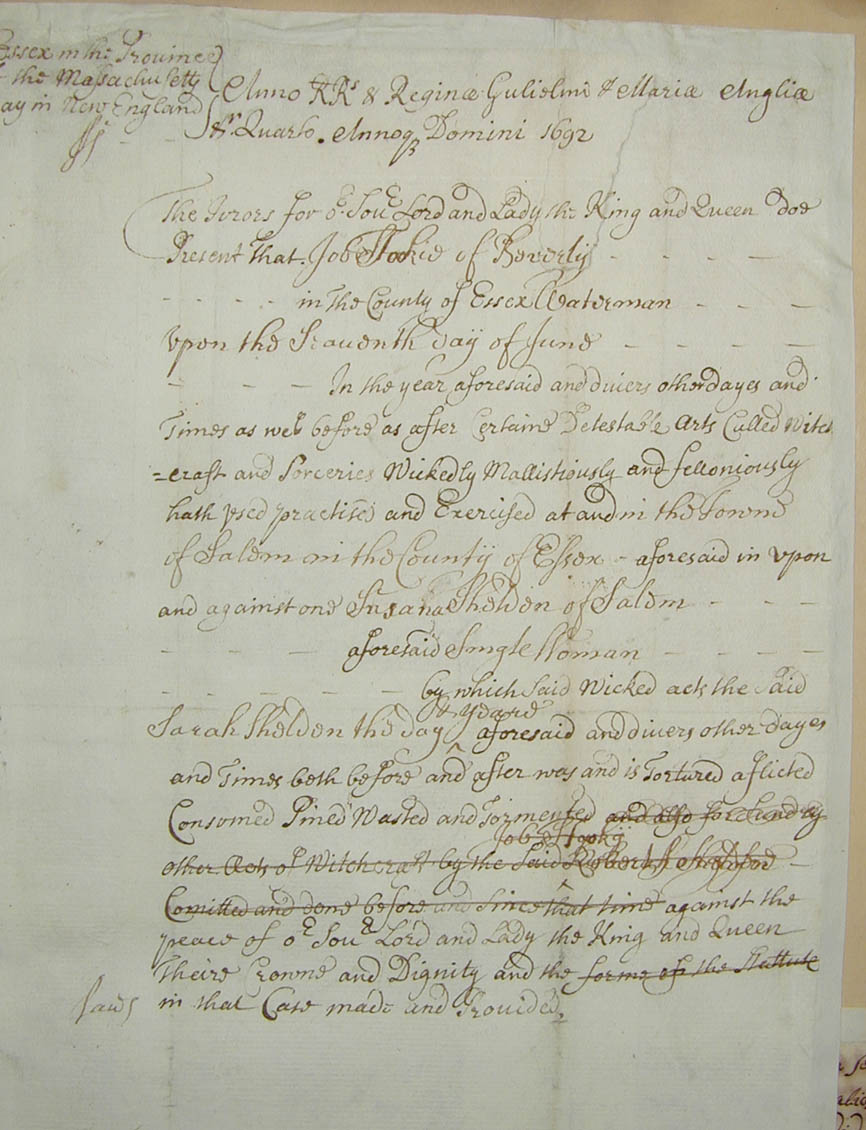 Essex in the Province
the Massachusetts
ay in New England
ss
Anno RRs & Reginæ Gulielmi & Mariæ Angliæ
&c Quarto. Annoq Domini 1692
The Jurors for or Sour Lord and Lady the King and Queen doe
Present That. Job Tookie of Beverly
in The County of Essex Waterman
Vpon the Seauenth day of June
In the year aforesaid and divers other dayes and
Times as well before as after Certaine Detestable Arts Called Witch
=craft and Sorceries Wickedly Mallistiously and felloniously
hath vsed practised and Exercised at and in the Towne
of Salem in the County of Essex aforesaid in vpon
and against one Susana Shelden of Salem
aforesaid Single Woman
by which Said Wicked acts the Said
& yeare
Sarah Shelden the day ^ aforesaid and divers other dayes
and Times both before and after was and is Tortured aflicted
Consumed Pined Wasted and Tormented and also for Sundry
Job Tooky
other Acts of Witchcraft by the Said
Comitted and done before and Since that time against the
peace of or Sour Lord and Lady the King and Queen
Theire Crowne and Dignity and the forme of the Stattute
laws in that Case made and Prouided.